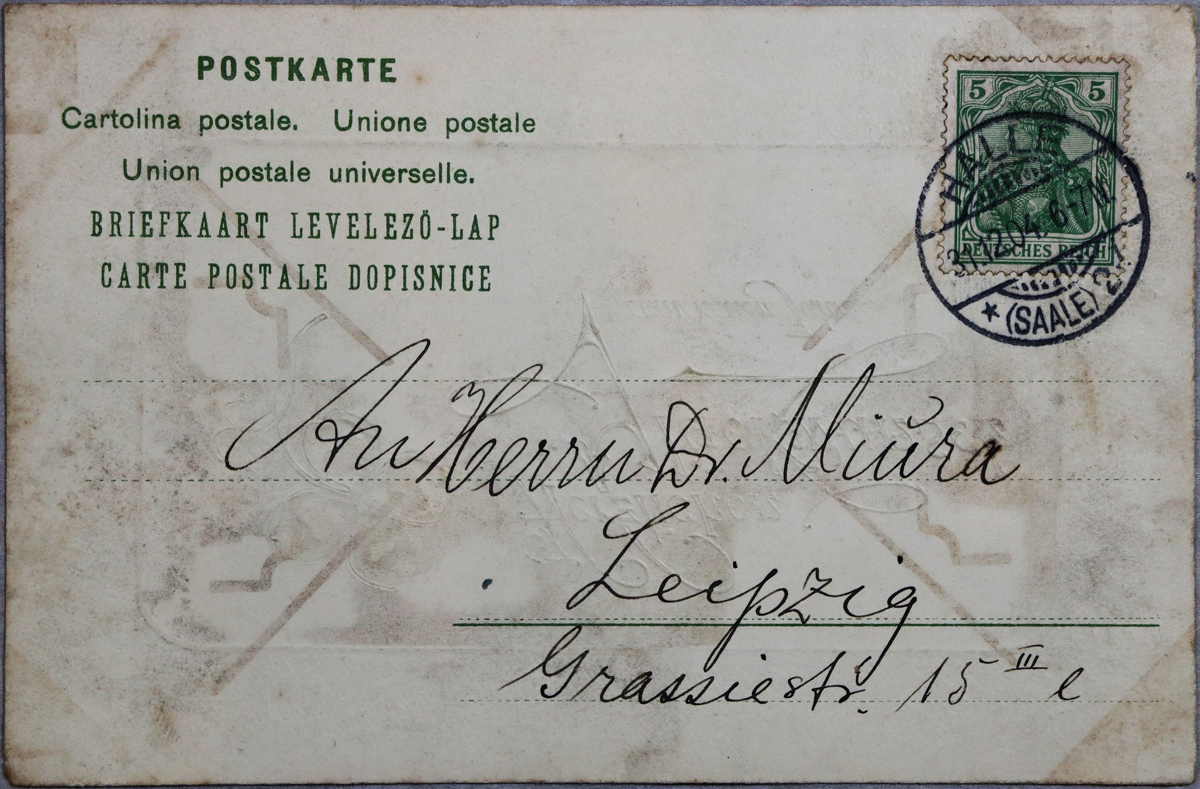 POSTKARTE
Cartolina postale. Unione postale
Union postale universelle.
BRIEFKAART LEVELEZŐ-LAP
CARTE POSTALE DOPISNICE
5 5
DEUTSCHES REICH
HALLE
31.12.04. 6-7N.
* (SAALE) 2
An Herrn Dr. Miūra
Leipzig
Grassiestr. 15 III l